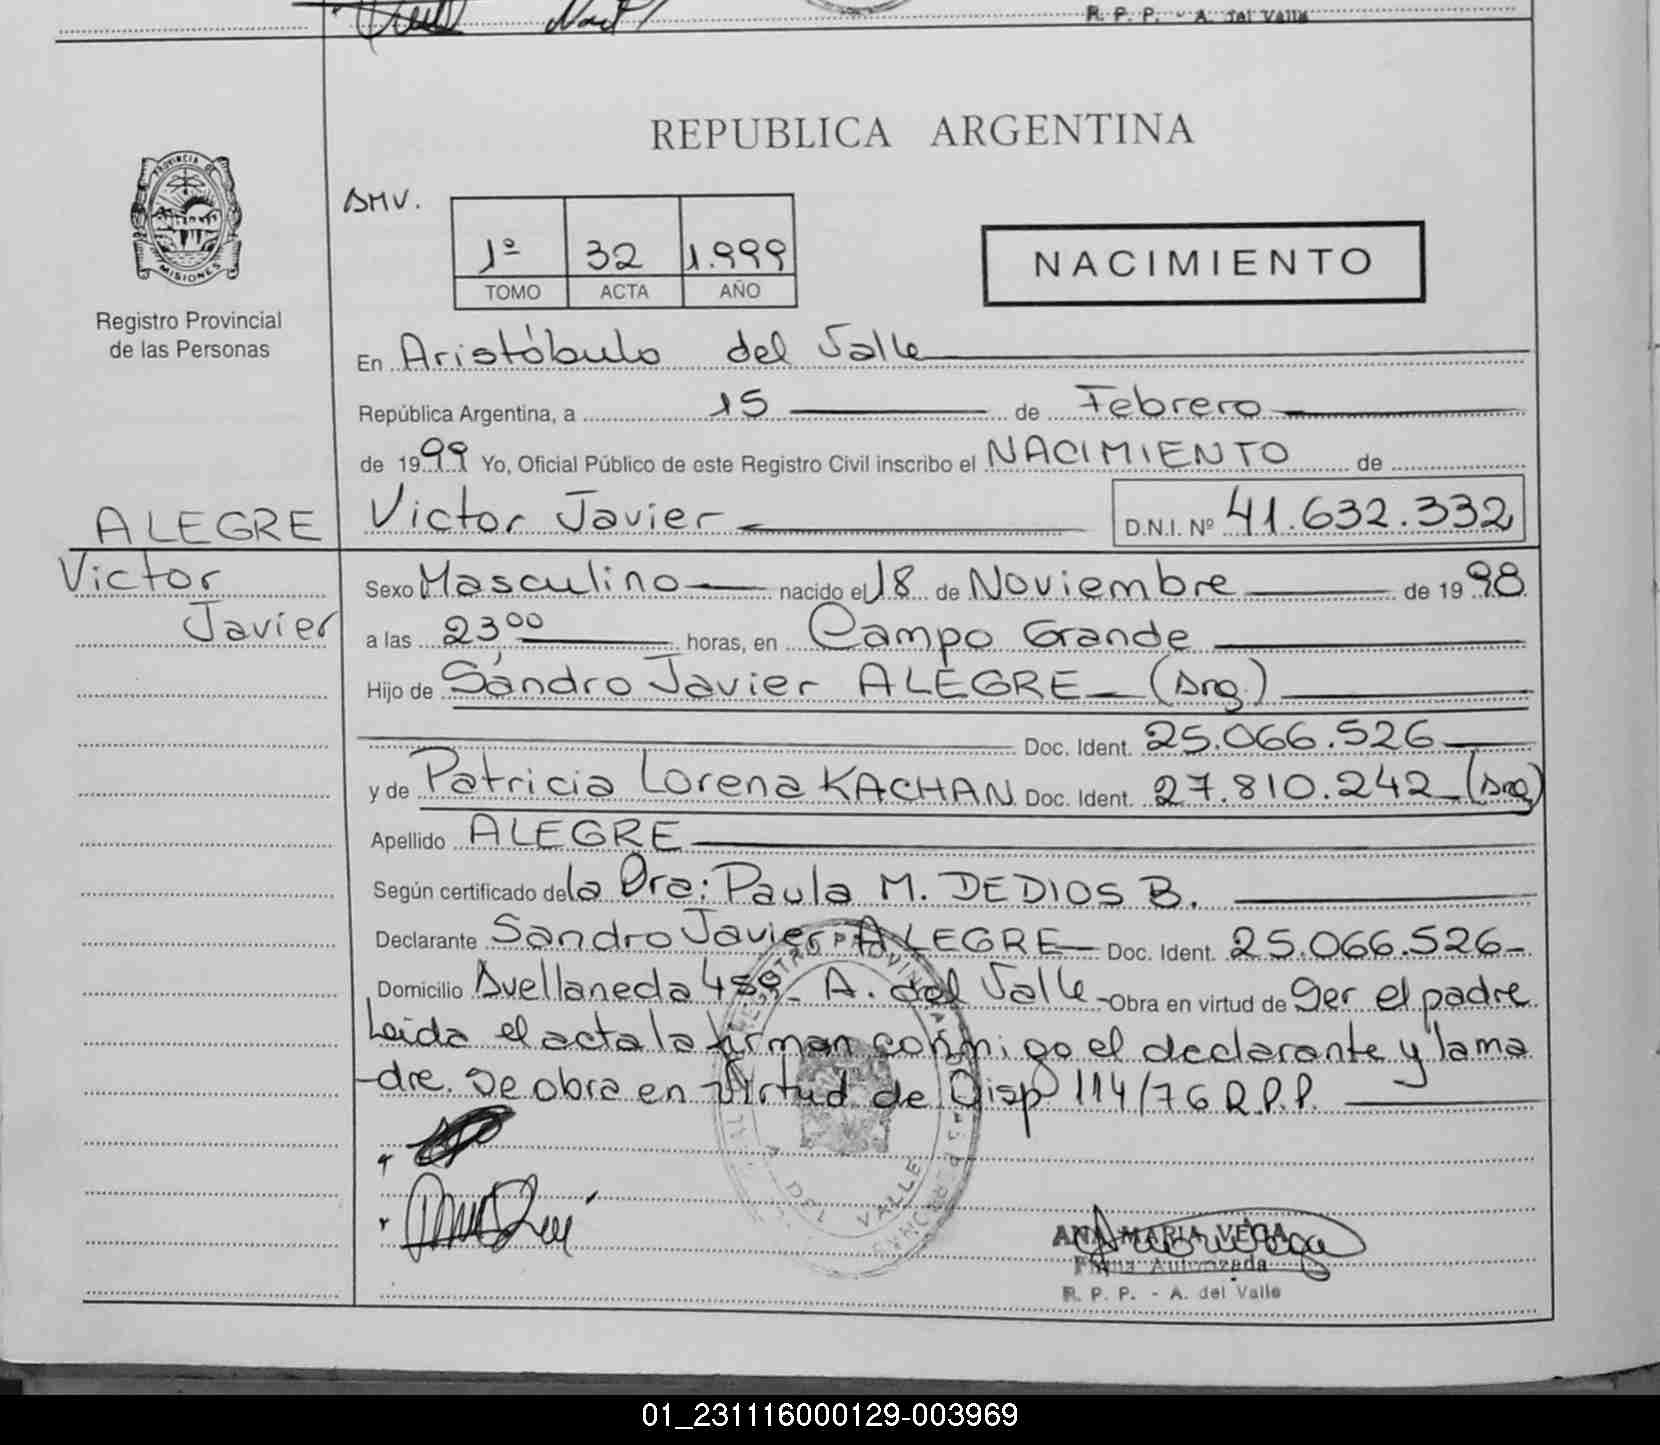 R. P. P. - A. del Valle
REPUBLICA ARGENTINA
PROVINCIA DE
MISIONES
Registro Provincial
de las Personas
AMV.
1º 32 1.999
TOMO ACTA AÑO
NACIMIENTO
En Aristóbulo del Valle
República Argentina, a 15 de Febrero
de 1999 Yo, Oficial Público de este Registro Civil inscribo el NACIMIENTO de
ALEGRE
Victor
Javier
Victor Javier D.N.I. Nº 41.632.332
Sexo Masculino nacido el 18 de Noviembre de 1998
a las 23,00 horas, en Campo Grande
Hijo de Sandro Javier ALEGRE (Arg.)
Doc. Ident. 25.066.526
y de Patricia Lorena KACHAN Doc. Ident. 27.810.242 (Arg)
Apellido ALEGRE
Según certificado de la Dra: Paula M. DEDIOS B.
Declarante Sandro Javier ALEGRE Doc. Ident. 25.066.526
Domicilio Avellaneda 459 A. del Valle Obra en virtud de Ser el padre
Leida el acta la firman conmigo el declarante y la ma
-dre. Se obra en virtud de Disp 114/76 R.P.P.
A. DEL VALLE
ANA MARIA VEGA
Firma Autorizada
R. P. P. - A. del Valle
01_231116000129-003969